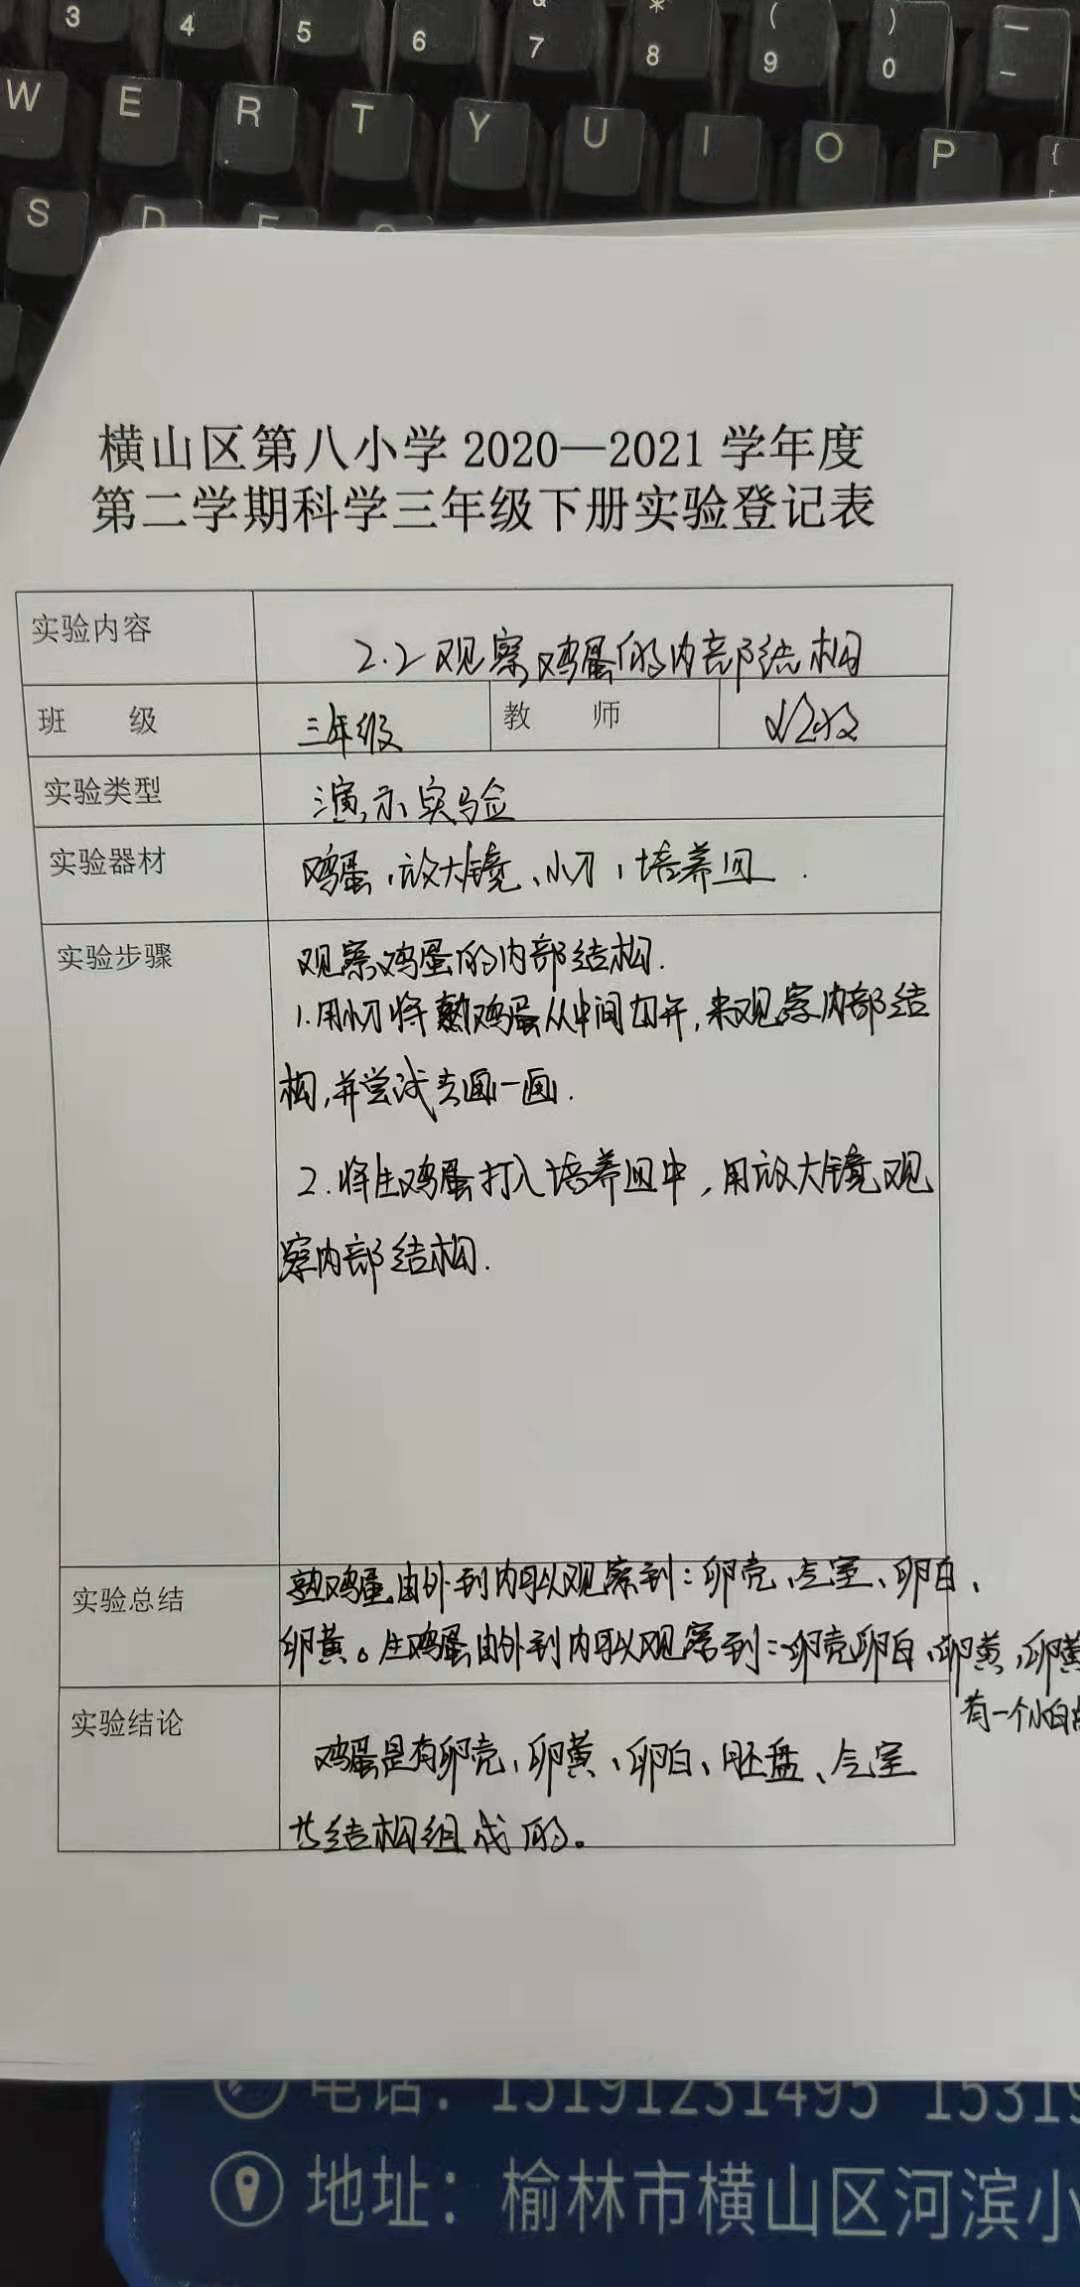 3 4 5 6 & 7 * 8 ( 9 ) 0 — –
W E R T Y U I O P {
S D F
横山区第八小学 2020—2021 学年度
第二学期科学三年级下册实验登记表
实验内容 2.2观察鸡蛋的内部结构
班 级 三年级 教 师
实验类型 演示实验
实验器材 鸡蛋、放大镜、小刀、培养皿.
实验步骤 观察鸡蛋的内部结构.
1.用小刀将熟鸡蛋从中间切开,来观察内部结
构,并尝试去画一画.
2.将生鸡蛋打入培养皿中,用放大镜观
察内部结构.
实验总结 熟鸡蛋由外到内可以观察到:卵壳、气室、卵白、
卵黄。生鸡蛋由外到内可以观察到:卵壳卵白、卵黄,卵黄
有一个小白点
实验结论 鸡蛋是有卵壳、卵黄、卵白、胚盘、气室
共结构组成的。
电话: 15191231495 15319
地址: 榆林市横山区河滨小